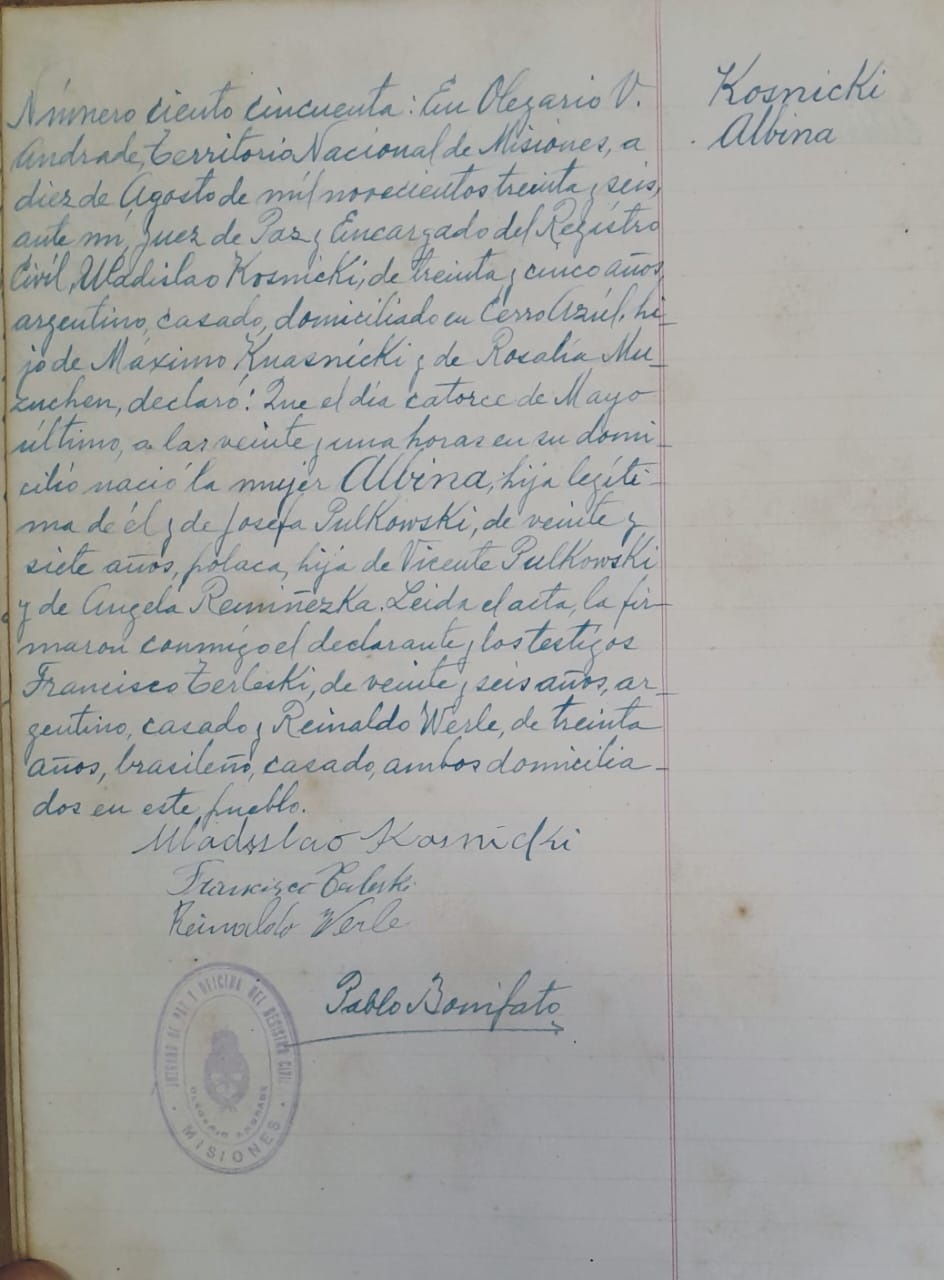 Kosnicki
Albina
Número ciento cincuenta: En Olegario V.
Andrade, Territorio Nacional de Misiones, a
diez de Agosto de mil novecientos treinta y seis,
ante mi, Juez de Paz y Encargado del Registro
Civil, Uladislao Kosnicki, de treinta y cinco años,
argentino, casado, domiciliado en Cerro Azúl, hi-
jo de Máximo Knasnicki y de Rosalía Mu-
zuchen, declaró: Que el día catorce de Mayo
último, a las veinte y una horas en su domi-
cilio nació la mujer Albina, hija legíti-
ma de él y de Josefa Pulkowski, de veinte y
siete años, polaca, hija de Vicente Pulkowski
y de Angela Remiñezka. Leida el acta, la fir-
maron conmigo el declarante y los testigos
Francisco Terleski, de veinte y seis años, ar-
gentino, casado y Reinaldo Werle, de treinta
años, brasileño, casado, ambos domicilia-
dos en este pueblo.
Uladyslao Kosnicki
Francisco Terleski
Reinaldo Werle
Pablo Bonifato
JUZGADO DE PAZ Y OFICINA DEL REGISTRO CIVIL
OLEGARIO ANDRADE
MISIONES